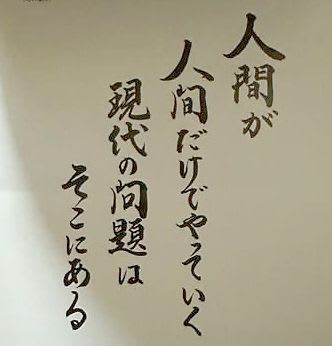 人間が
人間だけでやっていく
現代の問題は
そこにある